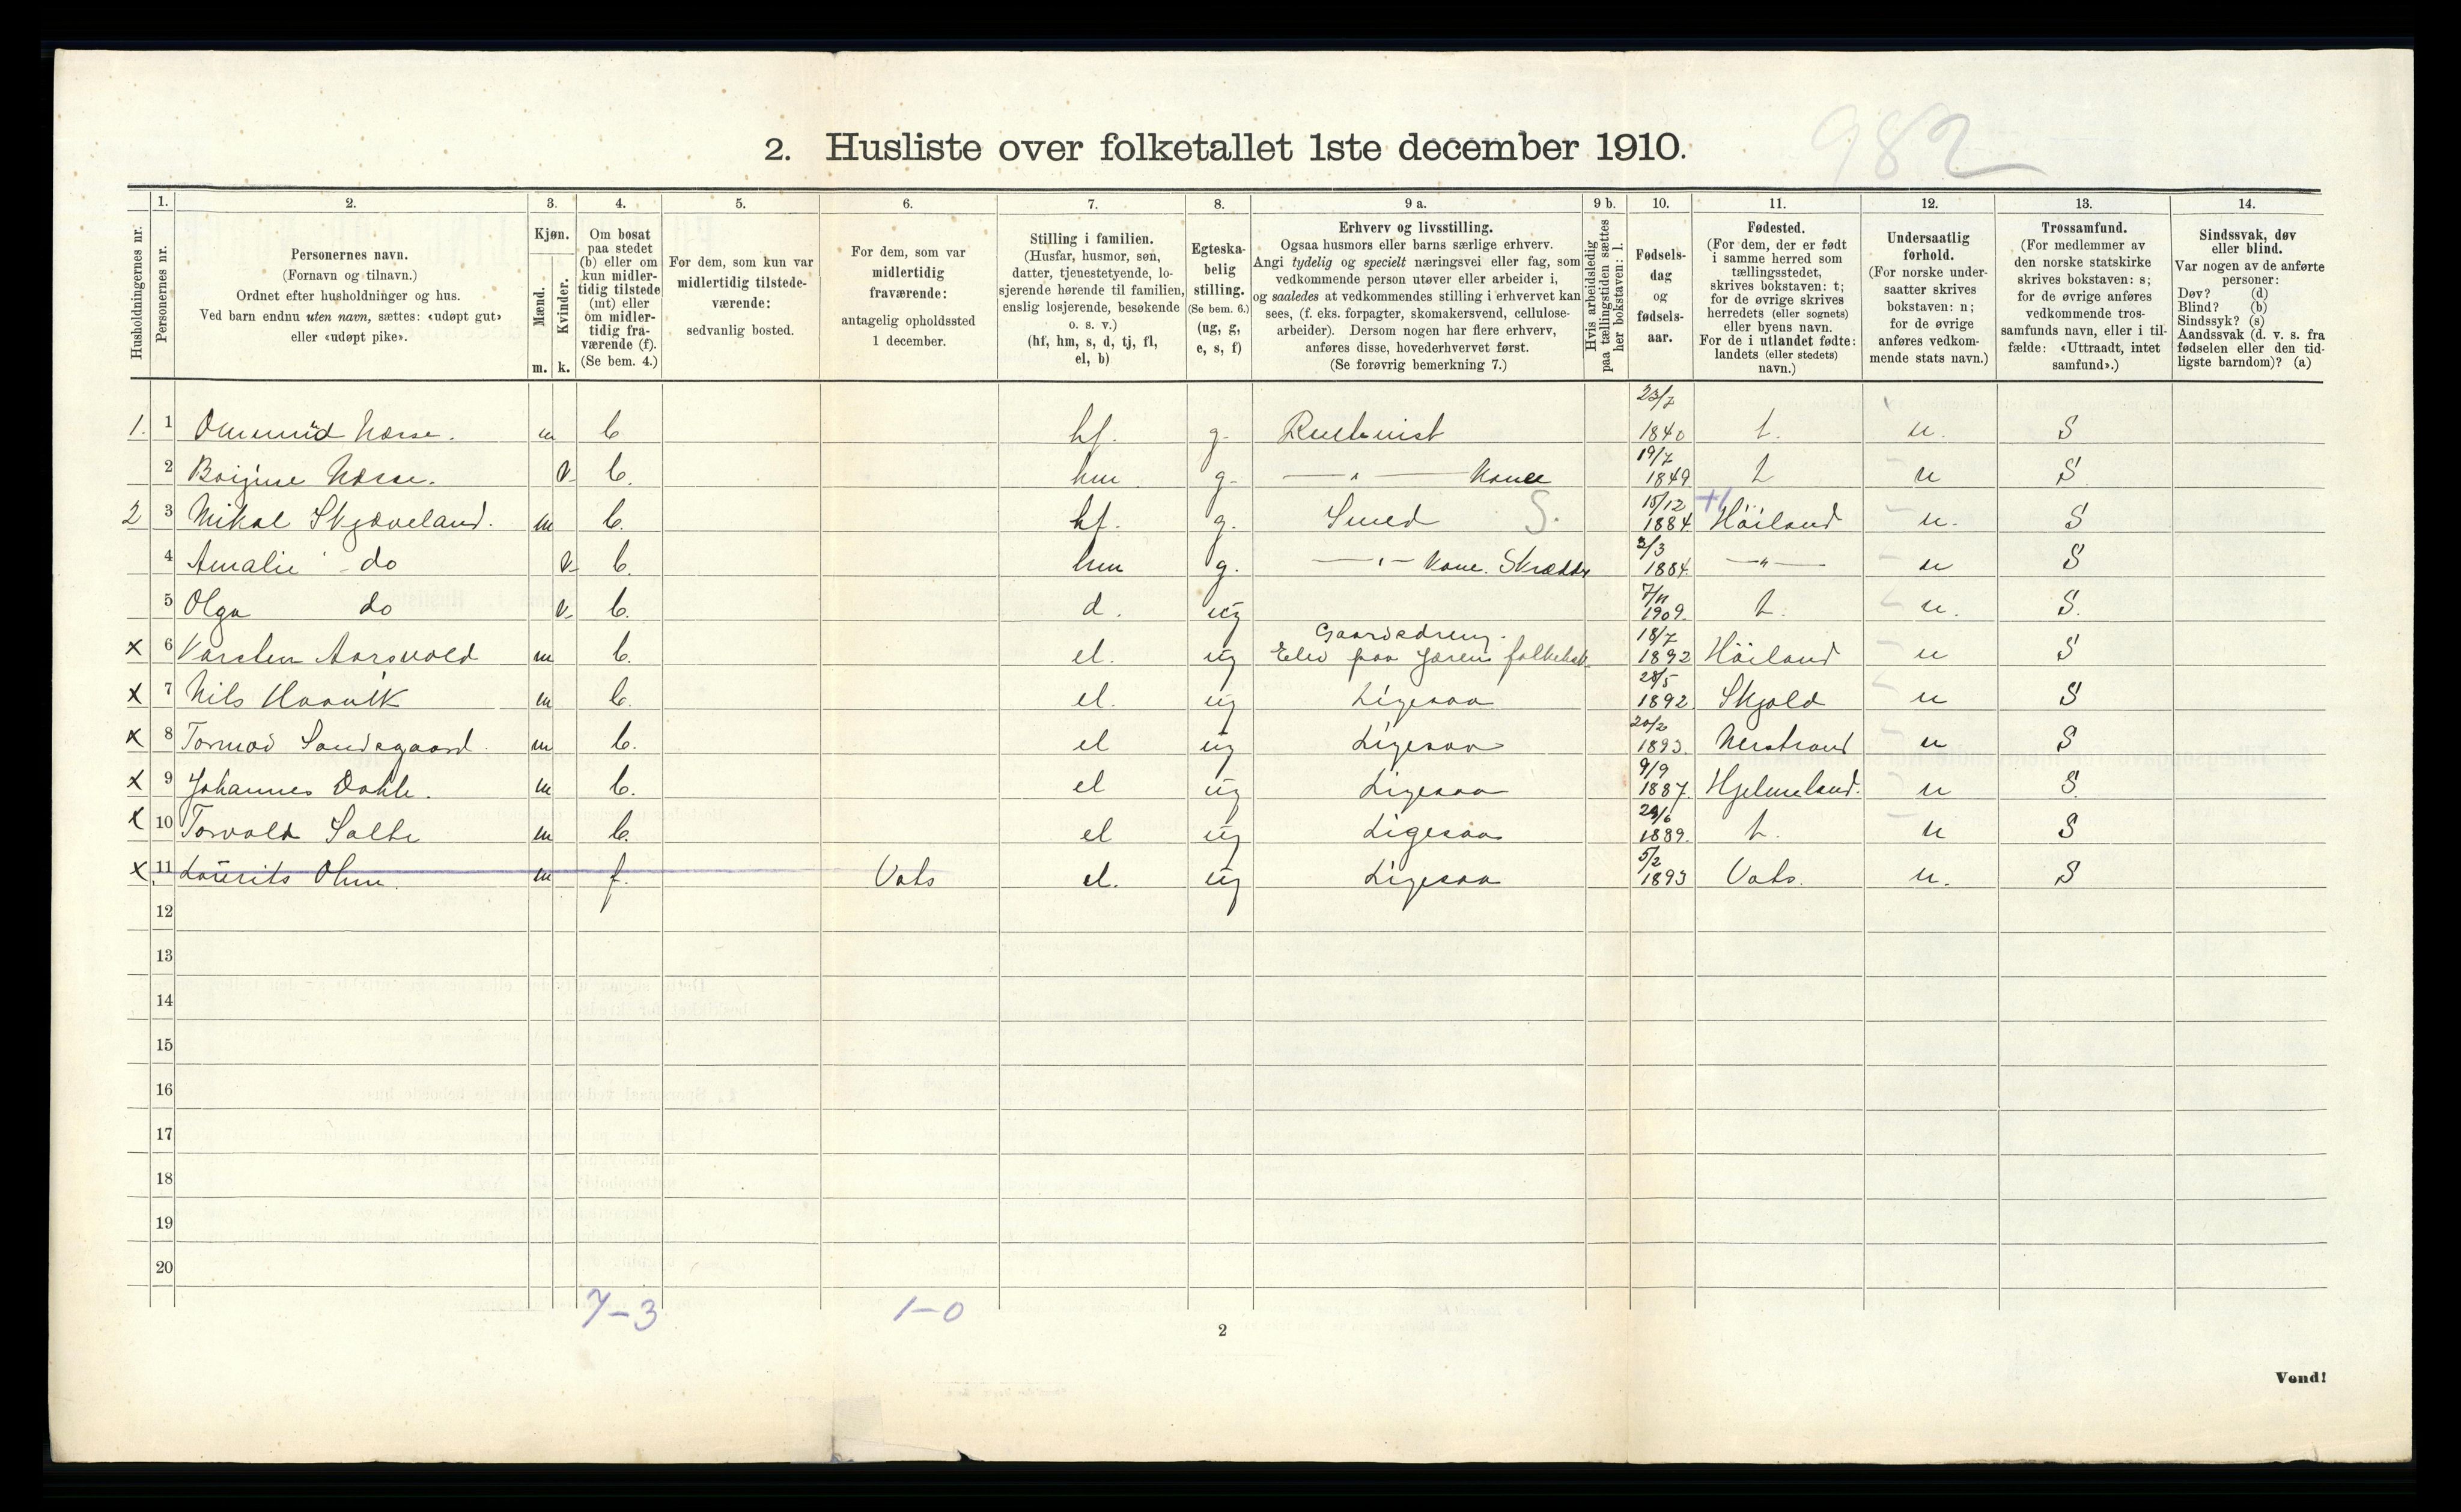 982
2. Husliste over folketallet 1ste december 1910.
Husholdningernes nr.
1.
Personernes nr.
2.
Personernes navn.
(Fornavn og tilnavn.)
Ordnet efter husholdninger og hus.
Ved barn endnu uten navn, sættes: «udøpt gut»
eller «udøpt pike».
3.
Kjøn.
Mænd.
m.
Kvinder.
k.
4.
Om bosat
paa stedet
(b) eller om
kun midler-
tidig tilstede
(mt) eller
om midler-
tidig fra-
værende (f).
(Se bem. 4.)
5.
For dem, som kun var
midlertidig tilstede-
værende:
sedvanlig bosted.
6.
For dem, som var
midlertidig
fraværende:
antagelig opholdssted
1 december.
7.
Stilling i familien.
(Husfar, husmor, søn,
datter, tjenestetyende, lo-
sjerende hørende til familien,
enslig losjerende, besøkende
o. s. v.)
(hf, hm, s, d, tj, fl,
el, b)
8.
Egteska-
belig
stilling.
(Se bem. 6.)
(ug, g,
e, s, f)
9 a.
Erhverv og livsstilling.
Ogsaa husmors eller barns særlige erhverv.
Angi tydelig og specielt næringsvei eller fag, som
vedkommende person utøver eller arbeider i,
og saaledes at vedkommendes stilling i erhvervet kan
sees, (f. eks. forpagter, skomakersvend, cellulose-
arbeider). Dersom nogen har flere erhverv,
anføres disse, hovederhvervet først.
(Se forøvrig bemerkning 7.)
9 b.
Hvis arbeidsledig
paa tællingstiden sættes
her bokstaven: l.
10.
Fødsels-
dag
og
fødsels-
aar.
11.
Fødested.
(For dem, der er født
i samme herred som
tællingsstedet,
skrives bokstaven: t;
for de øvrige skrives
herredets (eller sognets)
eller byens navn.
For de i utlandet fødte:
landets (eller stedets)
navn.)
12.
Undersaatlig
forhold.
(For norske under-
saatter skrives
bokstaven: n;
for de øvrige
anføres vedkom-
mende stats navn.)
13.
Trossamfund.
(For medlemmer av
den norske statskirke
skrives bokstaven: s;
for de øvrige anføres
vedkommende tros-
samfunds navn, eller i til-
fælde: «Uttraadt, intet
samfund».)
14.
Sindssvak, døv
eller blind.
Var nogen av de anførte
personer:
Døv? (d)
Blind? (b)
Sindssyk? (s)
Aandssvak (d. v. s. fra
fødselen eller den tid-
ligste barndom)? (a)
1. 1 Omund Næsse. m b hf. g. 23/7 1840 t. n. S
2 Næsse. k b. hm g. — " — Kone 19/7 1849 t n S
2 3 Mikal Skjæveland. m b. hf. g. Smed S. 15/12 1884. Höiland n. S
4 Amalie do k b. hm g. — " — Kone. 3/3 1884. — " — n S
5 Olga do k b. d. ug 7/11 1909. t. n. S.
Gaardsdreng.
x 6 Karsten Aarsvold m b. el. ug Elev paa Jærens folkehsk. 18/7 1892 Höiland n S
x 7 Nils Haavik m b. el. ug Ligesaa 28/5 1892 Skjold n S
x 8 Tormod Sandsgaard. m b. el ug Ligesaa 20/2 1893. Nerstrand n S
x 9 Johannes Dahle. m b. el ug Ligesaa 9/9 1887. Hjelmeland. n S.
x 10 Torvald Salte m b. el ug Ligesaa 1889. t. n S
x 11 Laurits m f. Vats el. ug Ligesaa 5/2 1893 Vats. n. S
12
13
14
15
16
17
18
19
20
7-3 1-0
2
Vend!